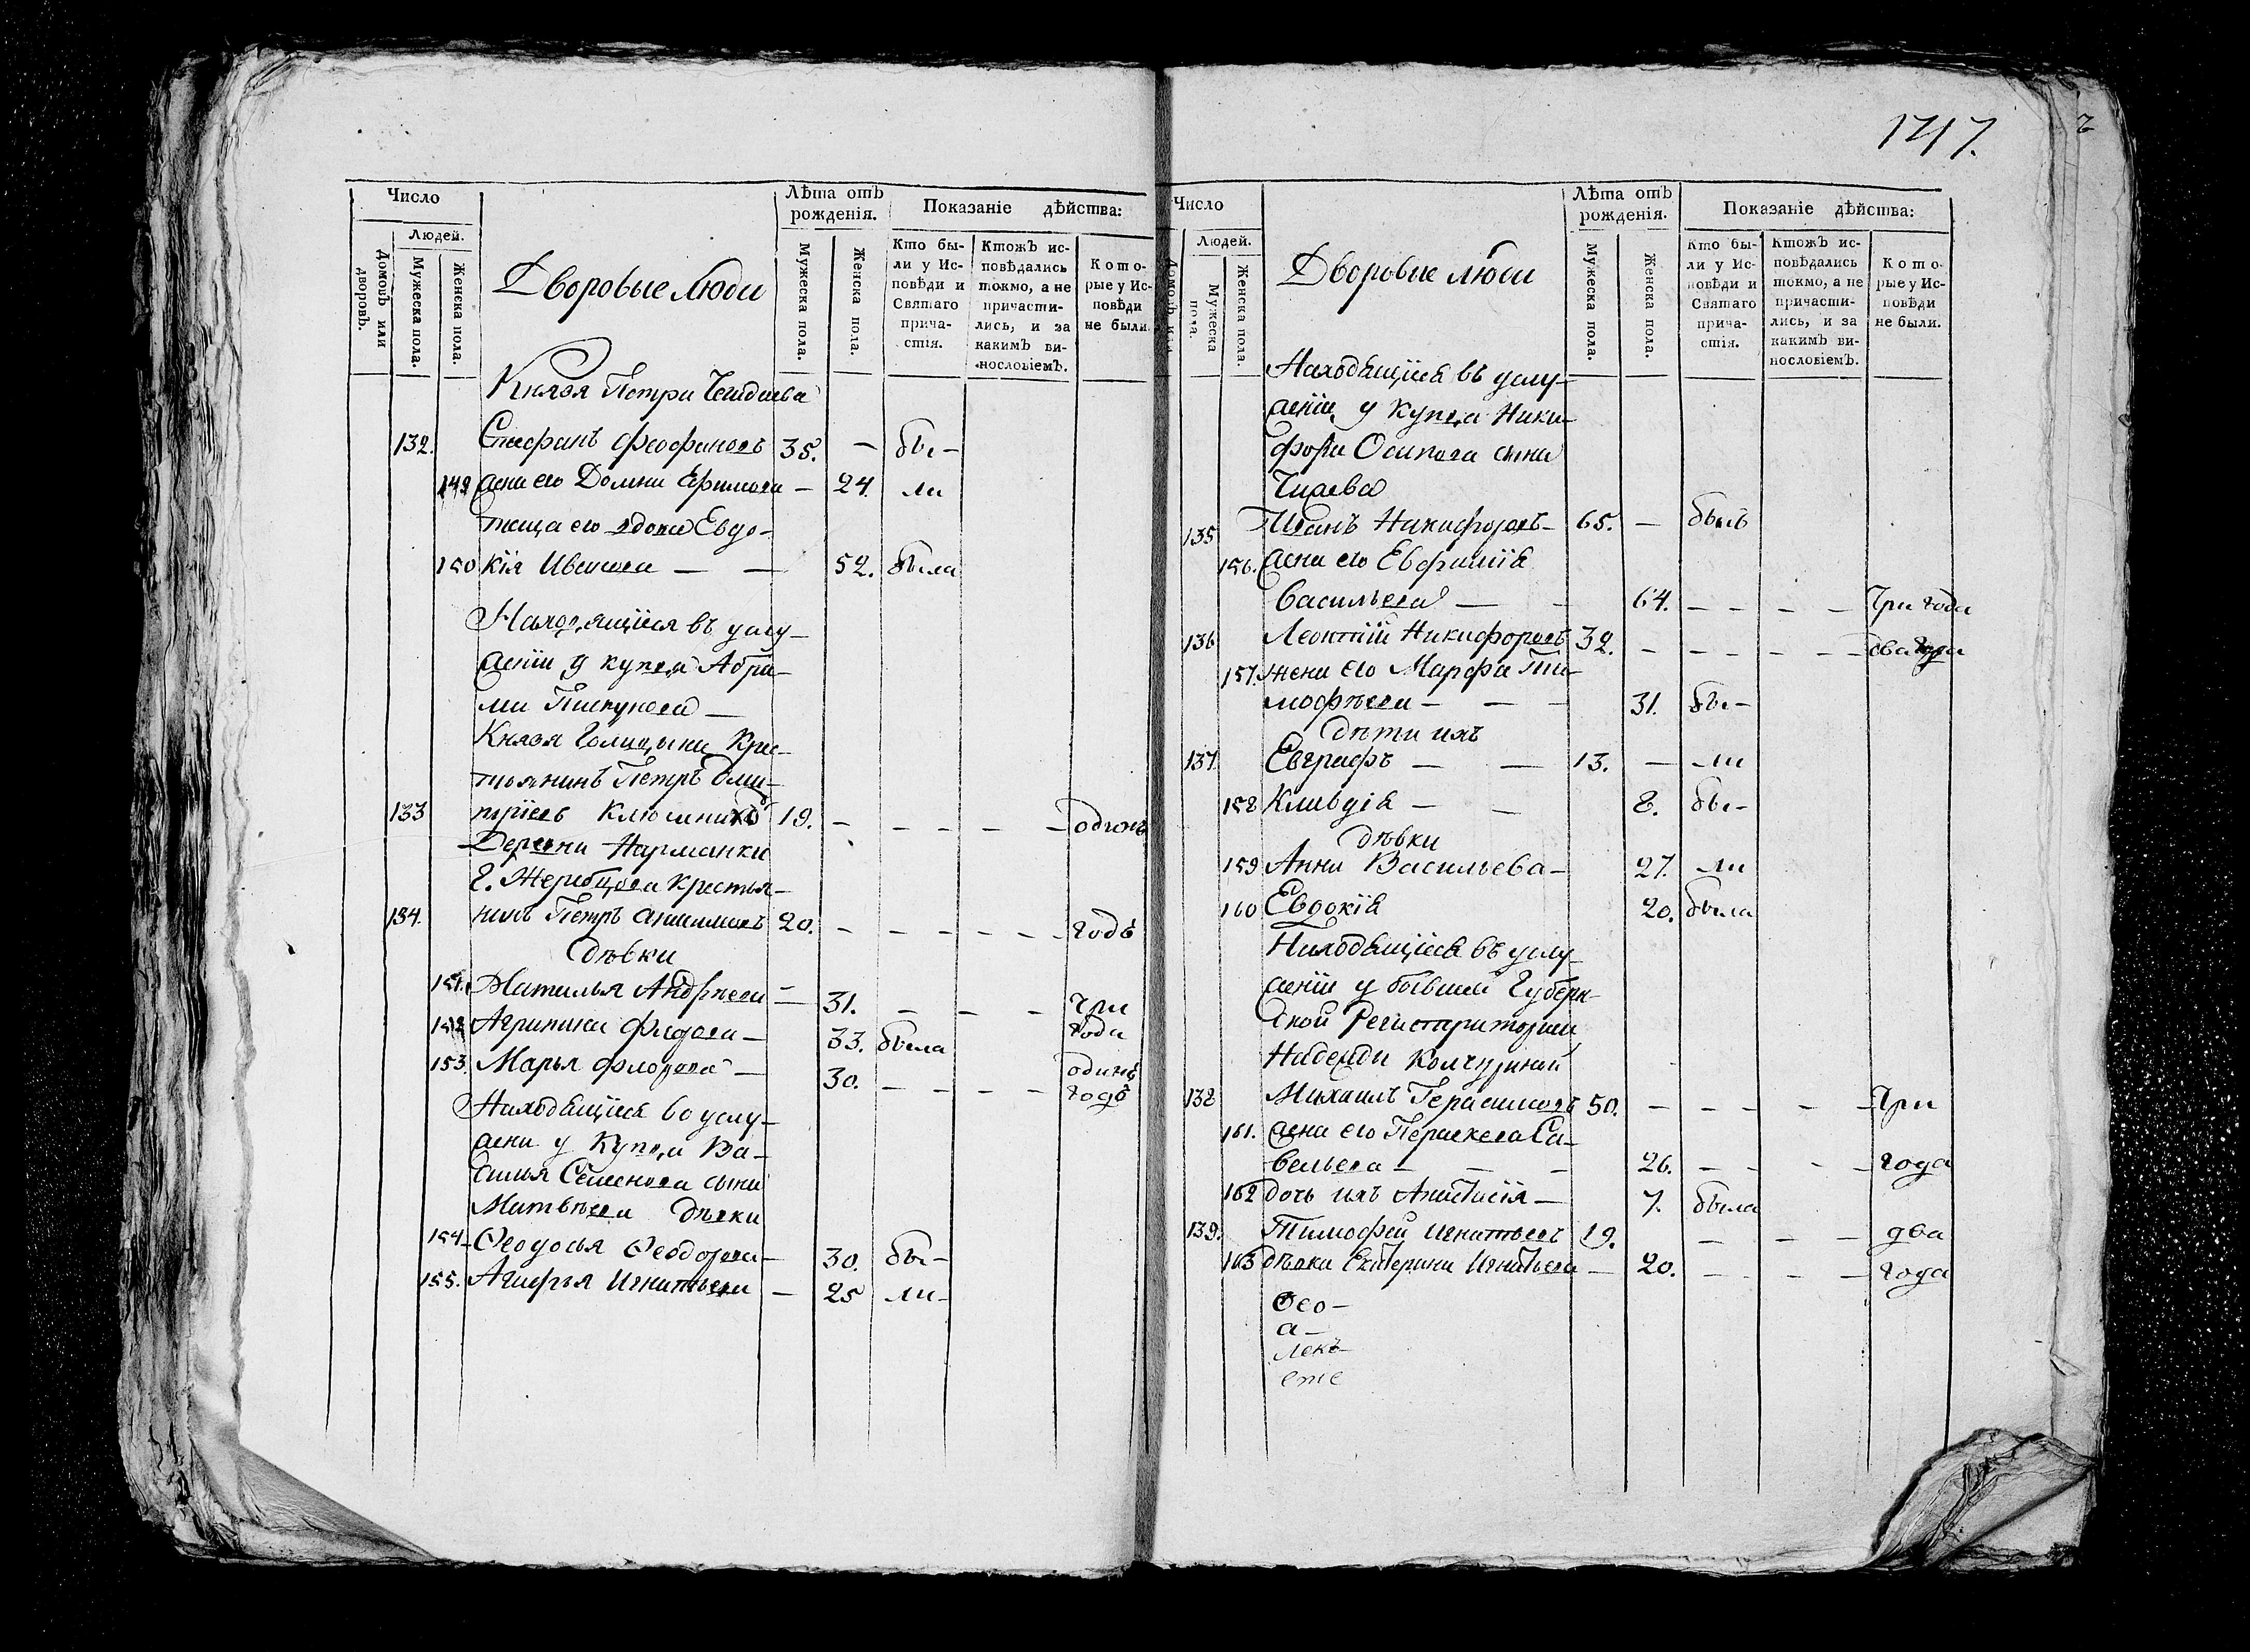 Число
Людей.
Домовъ или дворовъ.
Мужеска пола.
Женска пола.
Дворовые люди
Лѣта отъ рожденія.
Мужеска пола.
Женска пола.
Показаніе дѣйства:
Кто бы-
ли у Ис-
повѣди и
Святаго
прича-
стія.
Ктожъ ис-
повѣдались
токмо, а не
причасти-
лись, и за
какимъ ви-
нословіемъ.
Кото-
рые у Ис-
повѣди
не были.
Князя Петра
132. Стефанъ Феофановъ 35. — бы-
149 жена его Домна Ефимова — 24. ли
теща его вдова Евдо-
150 кія Иванова — — 52. была
Находящіеся въ услу-
женіи у купца Абра-
ма Пискунова —
Князя Голицына Крес-
тьянинъ Петръ Дми-
133 тріевъ Ключниковъ 19. — — — — — — одинъ
Деревни Нарманки
Г. Жеребцова крестья-
134. нинъ Петръ Анисимовъ 20. — — — — — — годъ
дѣвки
151. Наталья Андрѣева — 31. — — — три
152 Агрипина Федова — 33. была года
153. Марья Федорова — 30. — — — — одинъ
годъ
Находящіеся во услу-
жени у Купца Ва-
силья Семенова сына
Матвѣева дѣвки
154. Ѳеодосья Ѳеодорова — 30. бы-
155. Агафья Игнатьева — 25 ли-
1217.
Число
Людей.
Мужеска пола.
Женска пола.
Дворовые люди
Лѣта отъ рожденія.
Мужеска пола.
Женска пола.
Показаніе дѣйства:
Кто бы-
ли у Ис-
повѣди и
Святаго
прича-
стія.
Ктожъ ис-
повѣдались
токмо, а не
причасти-
лись, и за
какимъ ви-
нословіемъ.
Кото-
рые у Ис-
повѣди
не были.
Находящіеся въ услу-
женіи у Купца Ники-
фора Осипова сына
135 Иванъ Никифоровъ — 65. — былъ
156. жена его Евфимія
Васильева — — 64. — — — — Три года
136 Леонтій Никифоровъ 32. — — — — — — два года
157. жена его Марфа Ти-
мофѣева — — — 31. бы-
дѣти ихъ
137 Евграфъ — — 13. — ли
158 Клавдія — — 8. бы-
дѣвки
159 Анна Васильева — 27. ли
160 Евдокія 20. была
Находящіеся въ услу-
женіи у бывшей Губерн-
ской Регистраторши
Надежды Колчуриной
138 Михаилъ Герасимовъ 50. — — — — — Три
161. жена его Параскева Са-
вельева — — — 26. — — — — года
162 дочь ихъ Анастасія — 7. была
139. Тимофей Игнатьевъ 19. — — — два
163 дѣвка Екатерина Игнатьева — 20. — — — — года
Ѳео-
а-
лекъ-